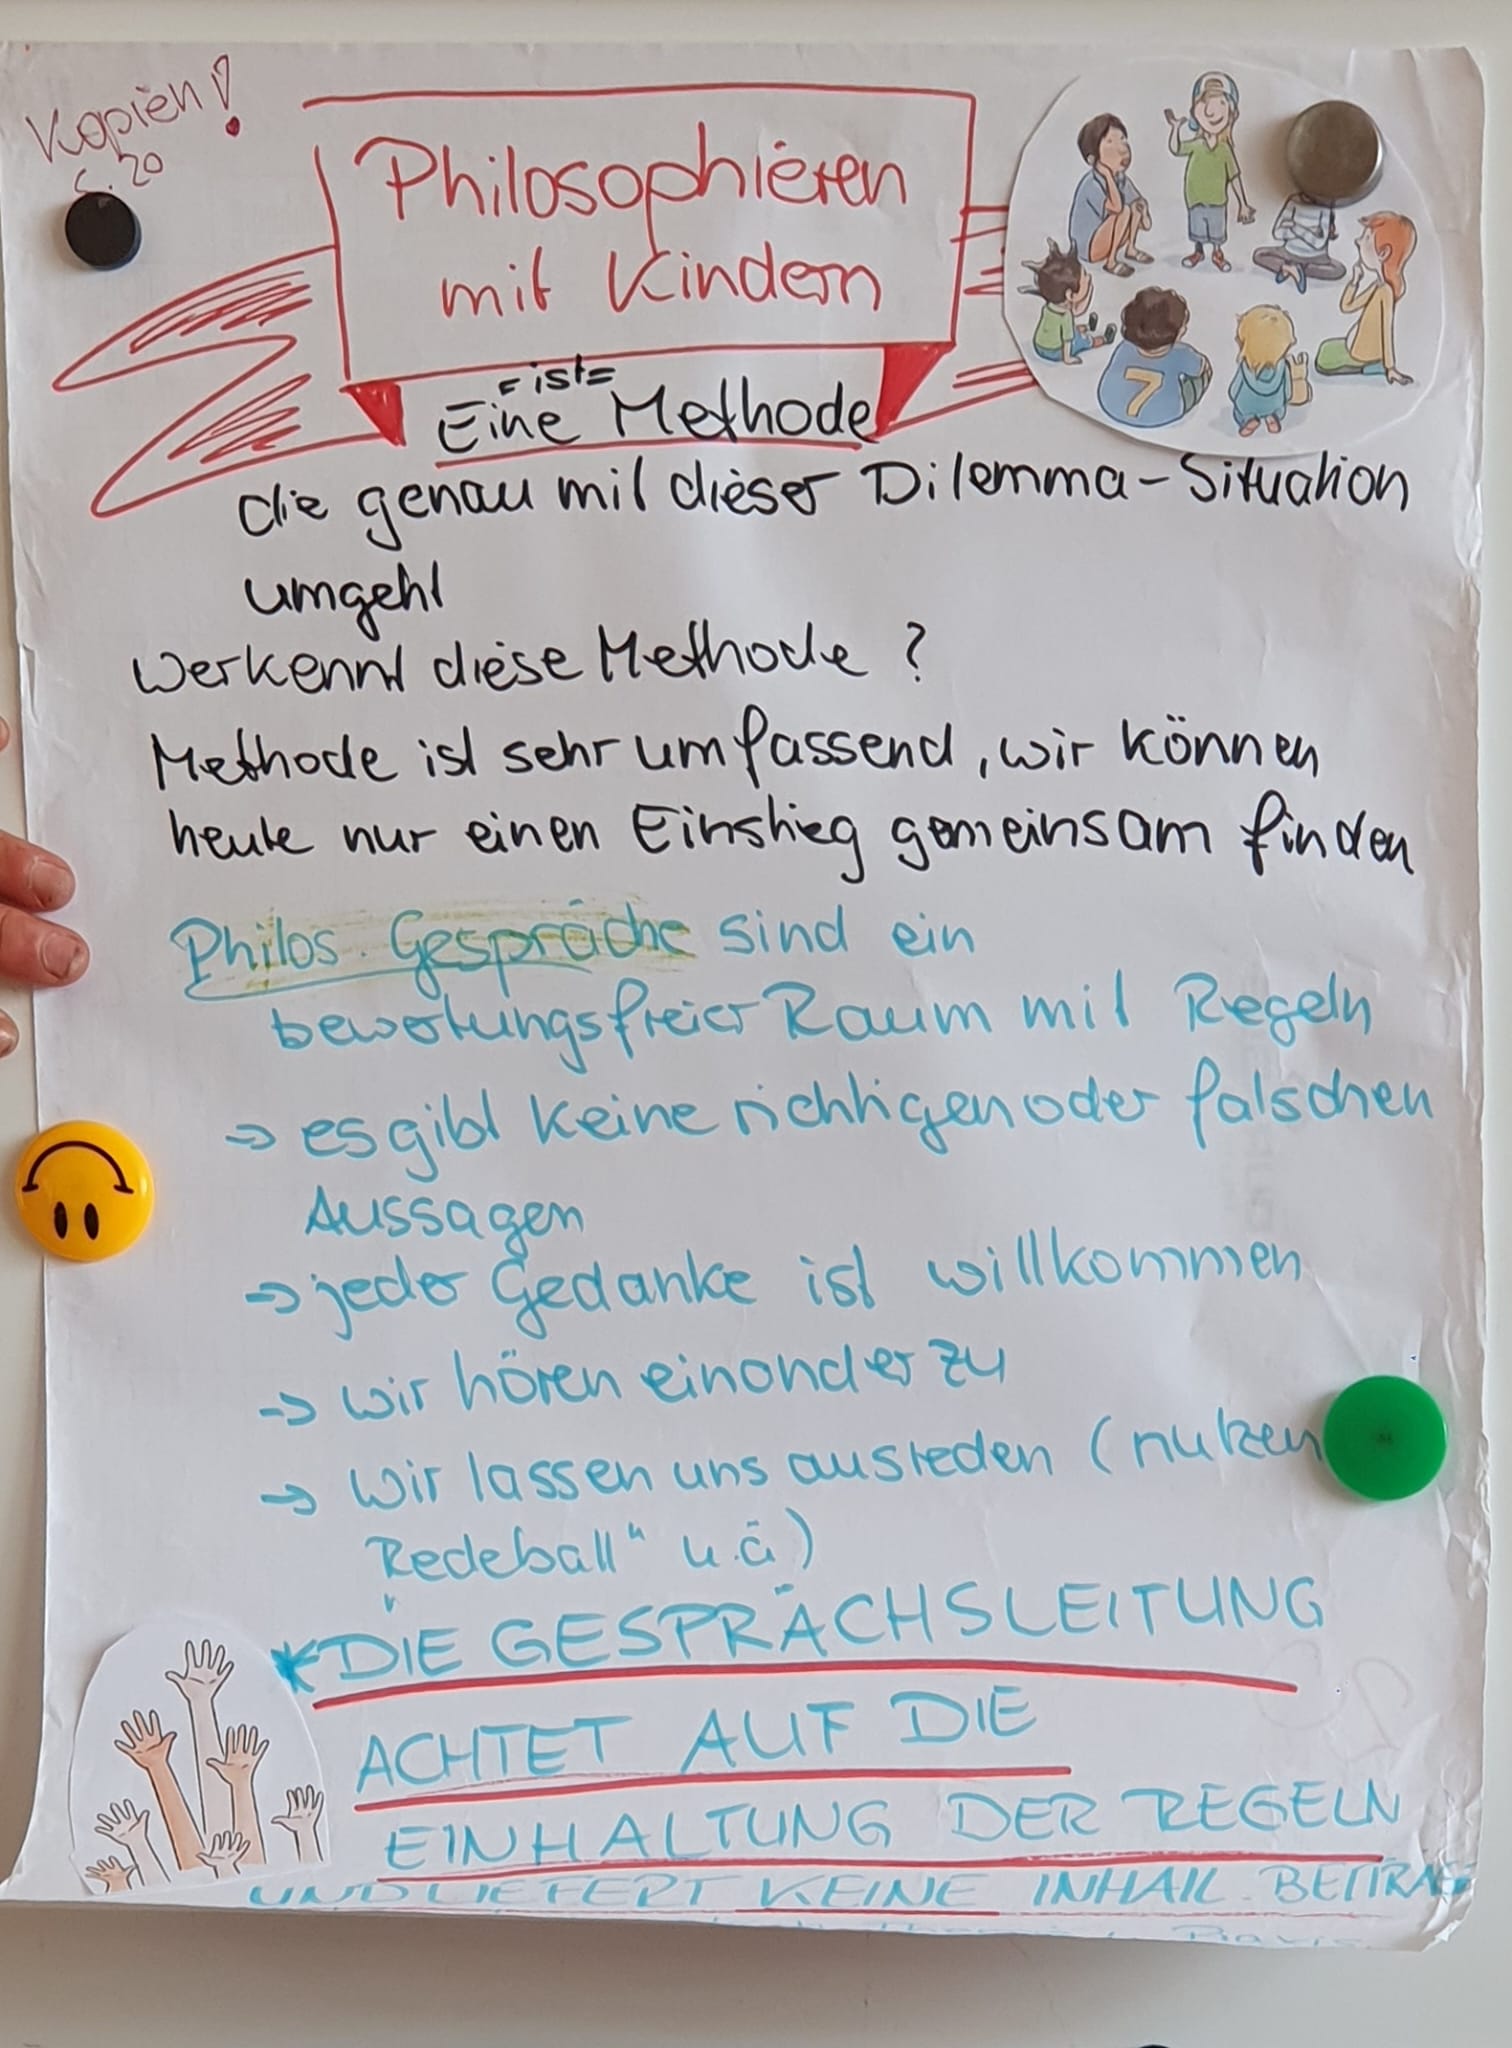 Kopien!
S. 20
Philosophieren
mit Kindern
=ist=
Eine Methode
die genau mit dieser Dilemma-Situation
umgeht
Wer kennt diese Methode?
Methode ist sehr umfassend, wir können
heute nur einen Einstieg gemeinsam finden
Philos. Gespräche sind ein
bewertungsfreier Raum mit Regeln
→ es gibt keine richtigen oder falschen
Aussagen
→ jeder Gedanke ist willkommen
→ wir hören einander zu
→ wir lassen uns ausreden (nutzen
„Redeball" u.ä)
* DIE GESPRÄCHSLEITUNG
ACHTET AUF DIE
EINHALTUNG DER REGELN
UND LIEFERT KEINE INHALTL. BEITRÄGE
7